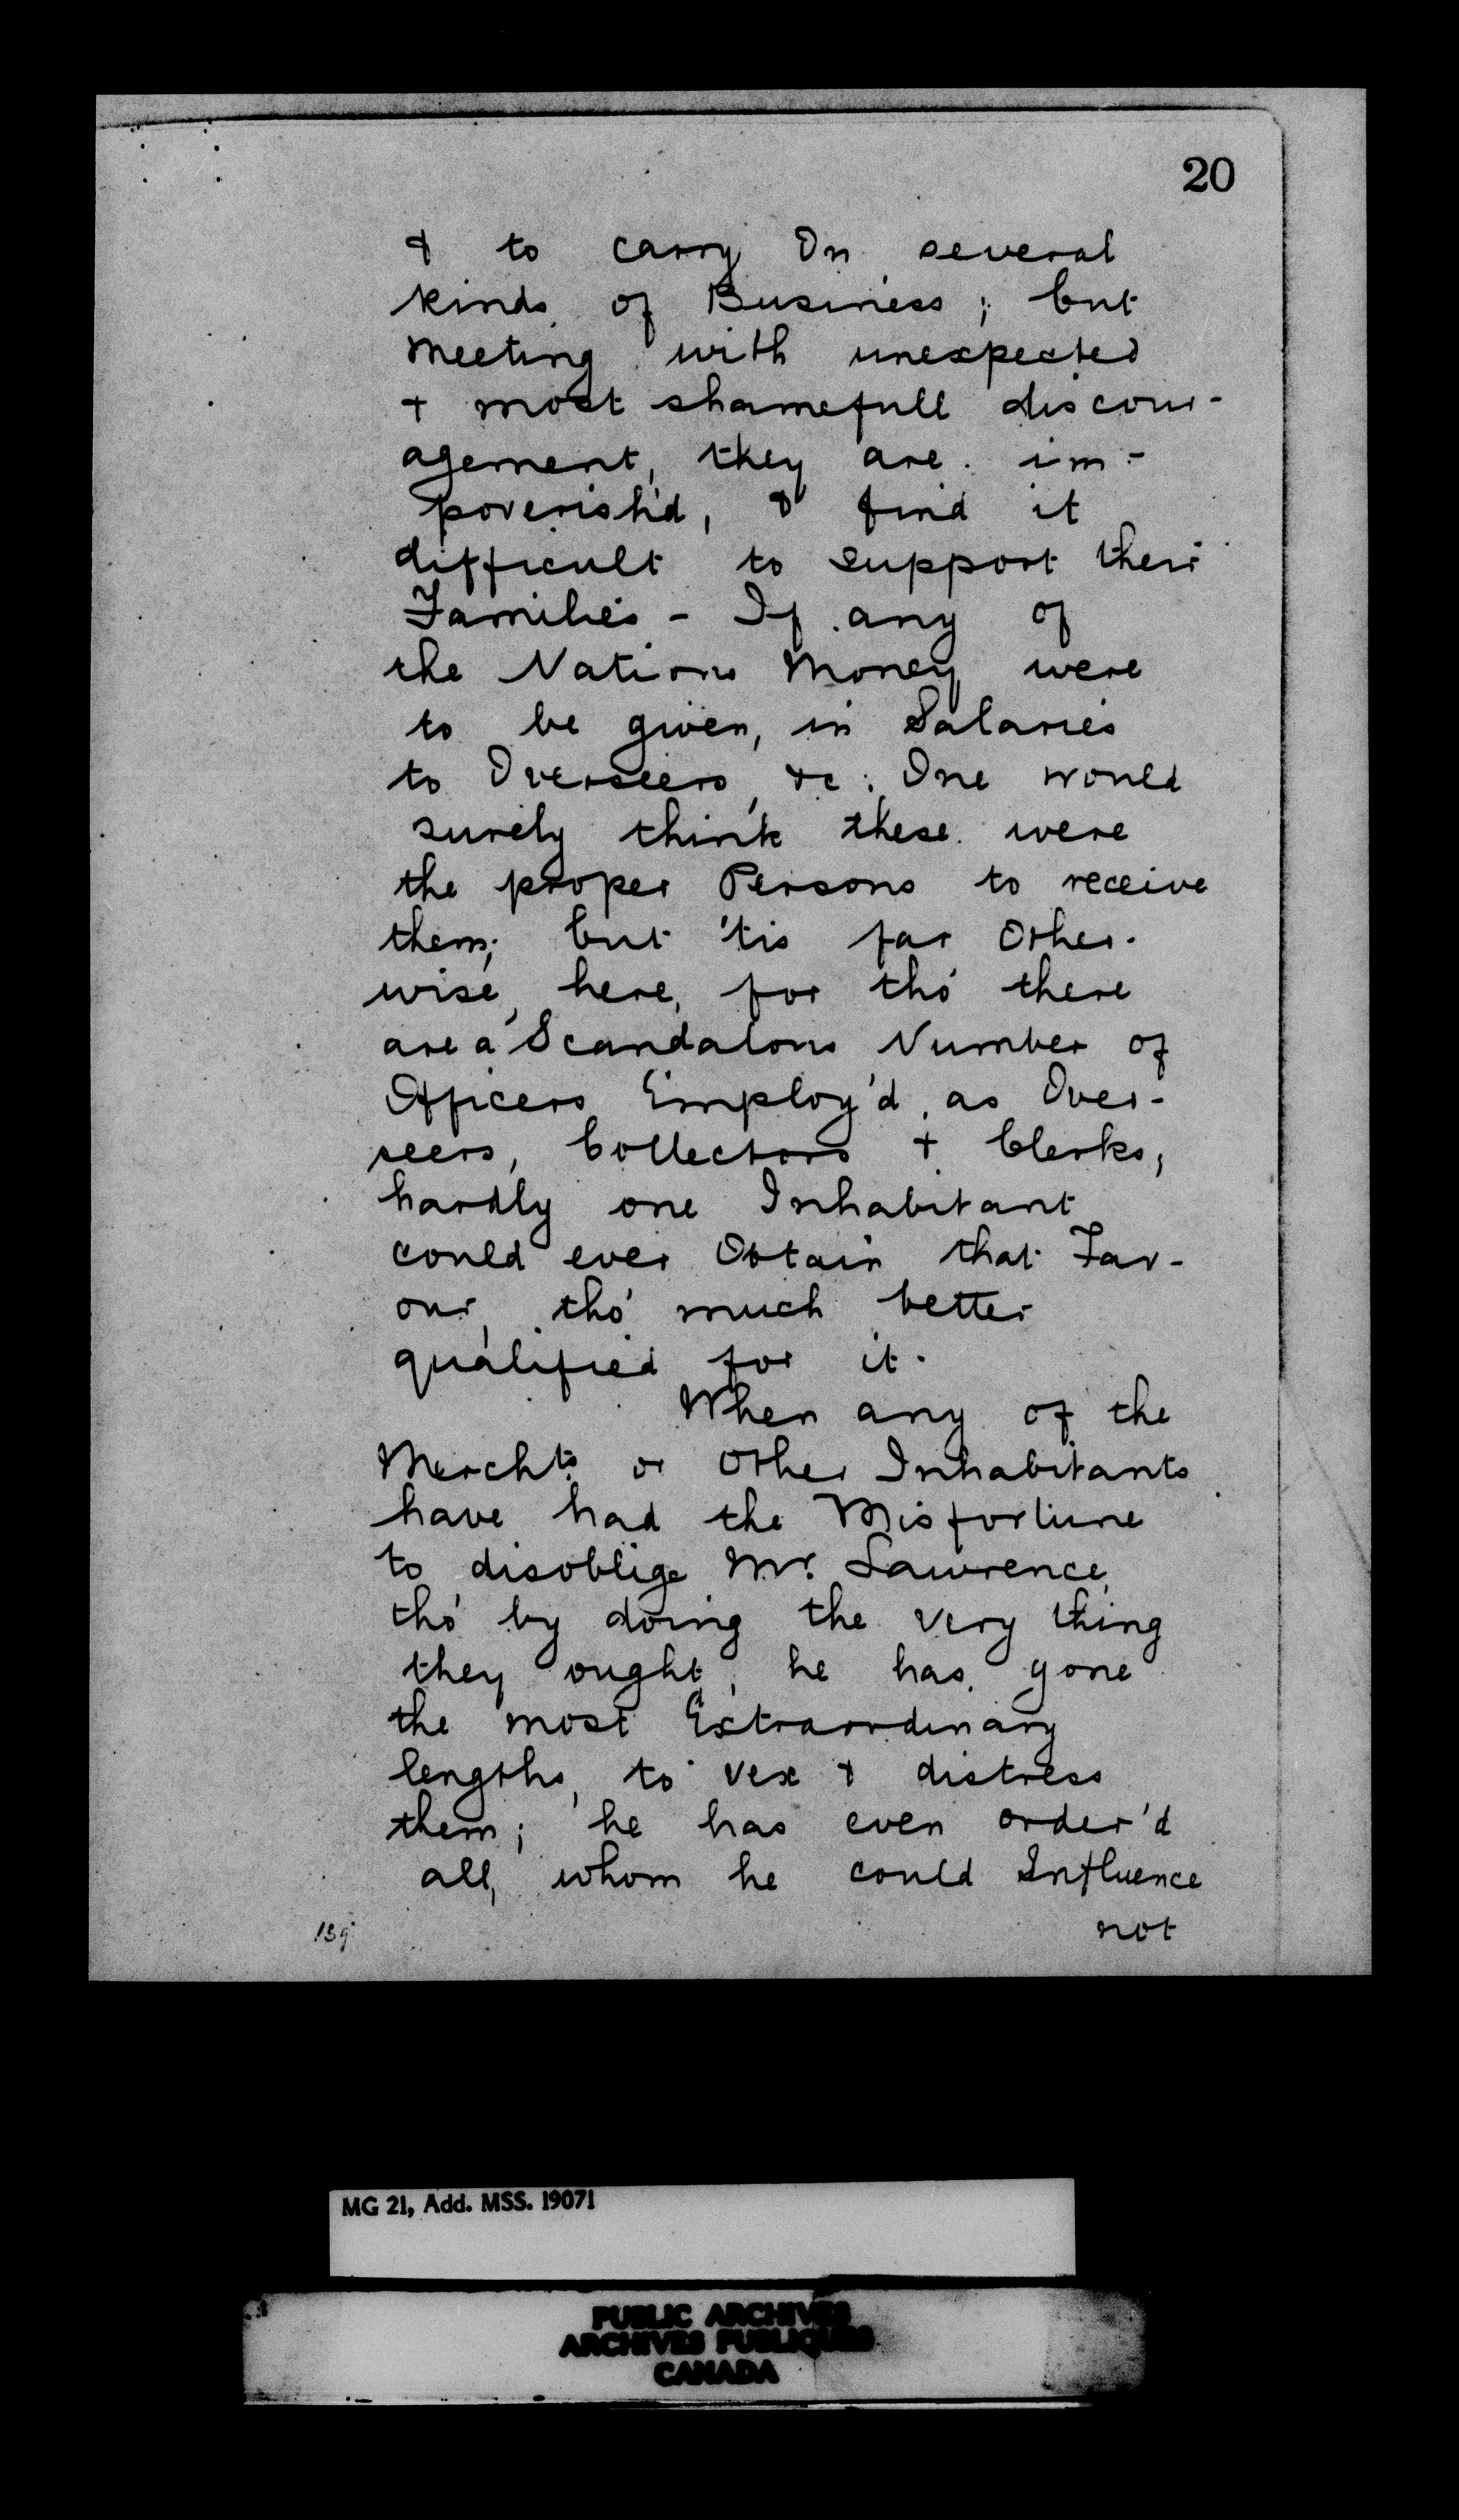 20
& to carry On several
kinds of Business; but
meeting with unexpected
& most shamefull discour-
agement, they are im-
poverish'd, & find it
difficult to support their
Families - If any of
the Nations Money were
to be given, in Salaries
to Overseers, &c: One would
surely think these were
the proper Persons to receive
them; but 'tis far Other-
wise, here, for tho' there
are a Scandalous Number of
Officers Employ'd, as Over-
seers, Collectors & Clerks,
hardly one Inhabitant
could ever Obtain that Fav-
our, tho' much better
qualified for it.
When any of the
Mercht.s or Other Inhabitants
have had the Misfortune
to disoblige Mr. Lawrence,
tho' by doing the very thing
they ought, he has gone
the most Extraordinary
lengths, to vex & distress
them; he has even order'd
all, whom he could Influence
not
MG 21, Add. MSS. 19071
PUBLIC ARCHIVES
ARCHIVES PUBLIQUES
CANADA